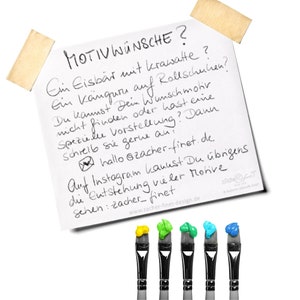 MOTIVWÜNSCHE?
Ein Eisbär mit Krawatte?
Ein Känguru auf Rollschuhen?
Du kannst Dein Wunschmotiv
nicht finden oder hast eine
spezielle Vorstellung? Dann
schreib sie gerne an?
hallo@zacher-finet.de
Auf Instagram kannst Du übrigens
die Entstehung vieler Motive
sehen: zacher_finet